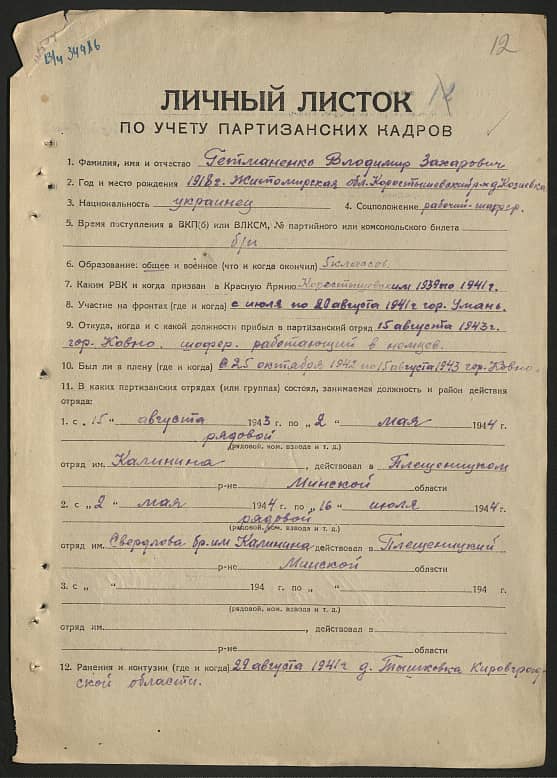 В/ч 34986
12
ЛИЧНЫЙ ЛИСТОК
ПО УЧЕТУ ПАРТИЗАНСКИХ КАДРОВ
1. Фамилия, имя и отчество Гетманенко Владимир Захарович
2. Год и место рождения 1918 г. Житомирская обл. Коростышевский р-н д. Козиевка
3. Национальность украинец 4. Соцположение рабочий-шофер.
5. Время поступления в ВКП(б) или ВЛКСМ, № партийного или комсомольского билета
б/п
6. Образование: общее и военное (что и когда окончил) 5 классов
7. Каким РВК и когда призван в Красную Армию Коростышевским 1939 по 1941 г.
8. Участие на фронтах (где и когда) с июля по 29 августа 1941 г гор. Умань.
9. Откуда, когда и с какой должности прибыл в партизанский отряд 15 августа 1943 г.
гор. Ковно. шофер. работающий в немцев.
10. Был ли в плену (где и когда) С 25 октября 1942 по 15 августа 1943 гор. Ковно.
11. В каких партизанских отрядах (или группах) состоял, занимаемая должность и район действия
отряда:
1. с „15“ августа 1943 г. по „2“ мая 1944 г.
рядовой
(рядовой, ком. взвода и т. д.)
отряд им. Калинина, действовал в Плещеницком
р-не Минской области
2. с „2“ мая 1944 г. по „16“ июля 1944 г.
рядовой
(рядовой, ком. взвода и т. д.)
отряд им. Свердлова бр. им Калинина действовал в Плещеницкий
р-не Минской области
3. с „ “ 194 г. по „ “ 194 г.
(рядовой, ком. взвода и т. д.)
отряд им. , действовал в
р-не области
12. Ранения и контузии (где и когда) 29 августа 1941 г д. Тышковка Кировград-
ской области.